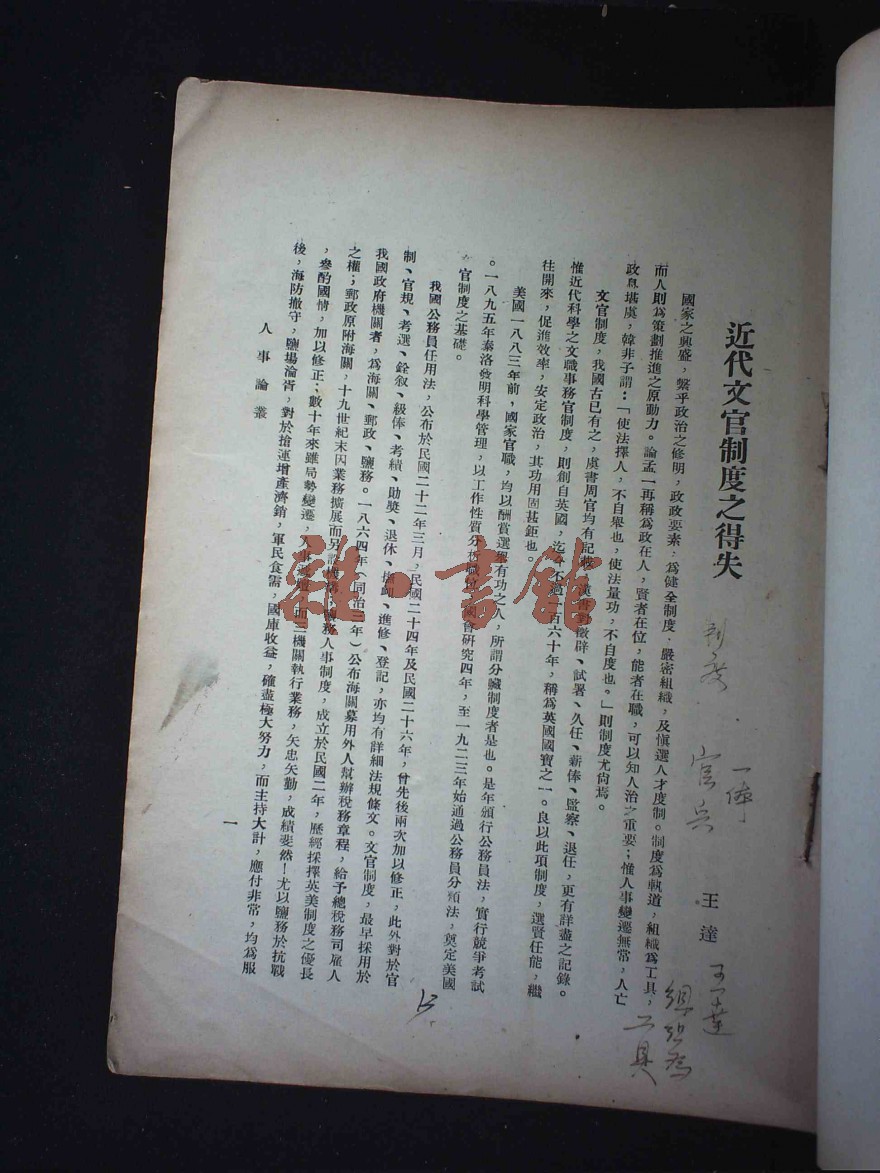 近代文官制度之得失
王達
國家之興盛，繫乎政治之修明，政政要素，為健全制度，嚴密組織，及慎選人才度制。制度為軌道，組織為工具，
而人則為策劃推進之原動力。論孟一再稱為政在人，賢者在位，能者在職，可以知人治之重要；惟人事變遷無常，人亡
政息堪虞，韓非子謂：「使法擇人，不自舉也，使法量功，不自度也。」則制度尤尚焉。
文官制度，我國古已有之，虞書周官均有記載，漢書對徵辟、試署、久任、薪俸、監察、退任，更有詳盡之記錄。
惟近代科學之文職事務官制度，則創自英國，迄今不過一百六十年，稱為英國國寶之一。良以此項制度，選賢任能，繼
往開來，促進效率，安定政治，其功用固甚鉅也。
美國一八八三年前，國家官職，均以酬賞選舉有功之人，所謂分贓制度者是也。是年頒行公務員法，實行競爭考試
。一八九五年泰洛發明科學管理，以工作性質分析職位，國會研究四年，至一九二三年始通過公務員分類法，奠定美國
文官制度之基礎。
我國公務員任用法，公布於民國二十二年三月，民國二十四年及民國二十六年，曾先後兩次加以修正，此外對於官
制、官規、考選、銓敘、級俸、考績、勛獎、退休、撫卹、進修、登記，亦均有詳細法規條文。文官制度，最早採用於
我國政府機關者，為海關、郵政、鹽務。一八六四年（同治三年）公布海關募用外人幫辦稅務章程，給予總稅務司雇人
之權；郵政原附海關，十九世紀末因業務擴展而另設機構，鹽務人事制度，成立於民國二年，歷經採擇英美制度之優長
，參酌國情，加以修正；數十年來雖局勢變遷，人事，而三機關執行業務，矢忠矢勤，成績斐然！尤以鹽務於抗戰
後，海防撤守，鹽場淪胥，對於搶運增產濟銷，軍民食需，國庫收益，確盡極大努力，而主持大計，應付非常，均為服
人事論叢
一
雜·書館
制度
官兵
一俸
王達
組織為
工具